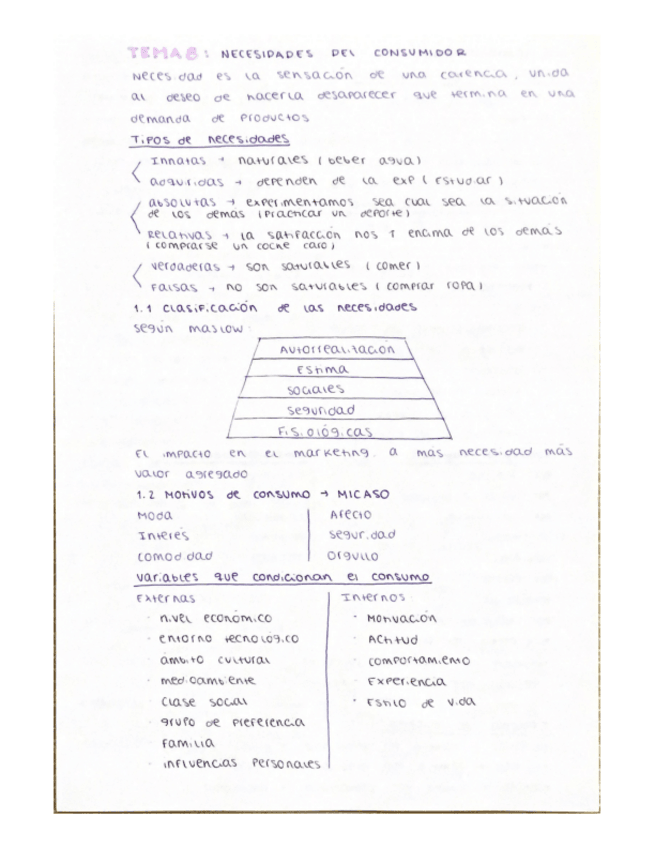 TEMA 8: NECESIDADES DEL CONSUMIDOR
Necesidad es la sensación de una carencia, unida
al deseo de hacerla desaparecer que termina en una
demanda de productos
Tipos de necesidades
Innatas → naturales (beber agua)
adquiridas → dependen de la exp (estudiar)
absolutas → experimentamos sea cual sea la situación
de los demás (practicar un deporte)
Relativas → la satisfacción nos ↑ encima de los demás
(comprarse un coche caro)
verdaderas → son saturables (comer)
Falsas → no son saturables (comprar ropa)
1.1 Clasificación de las necesidades
según maslow:
Autorrealización
Estima
sociales
seguridad
Fisiológicas
El impacto en el marketing: a mas necesidad más
valor agregado
1.2 Motivos de consumo → MICASO
Moda
Afecto
Interés
seguridad
comodidad
orgullo
variables que condicionan el consumo
Externas
· nivel económico
· entorno tecnológico
· ámbito cultural
· medioambiente
· clase social
· grupo de preferencia
· familia
· influencias personales
Internos
· Motivación
· Actitud
· comportamiento
· Experiencia
· Estilo de vida